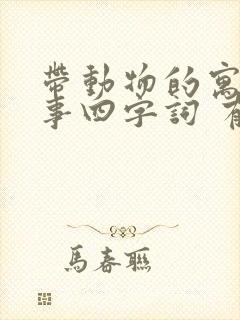 帶動物的寓
事四字詞
馬春聯